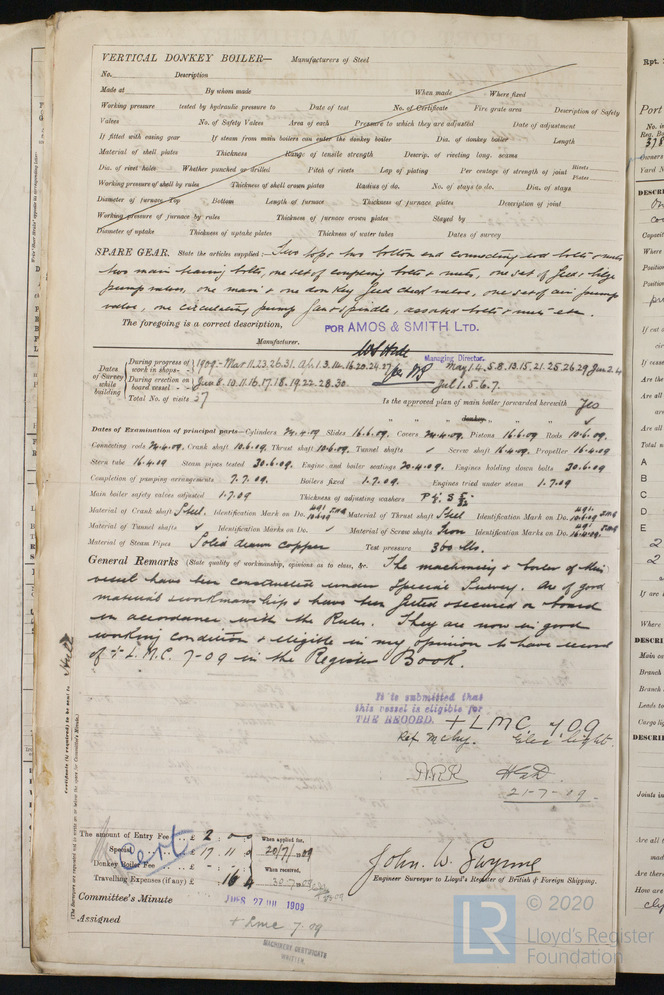 VERTICAL DONKEY BOILER— Manufacturers of Steel
No. Description
Made at By whom made When made Where fixed
Working pressure tested by hydraulic pressure to Date of test No. of Certificate Fire grate area Description of Safety
Valves No. of Safety Valves Area of each Pressure to which they are adjusted Date of adjustment
If fitted with easing gear If steam from main boilers can enter the donkey boiler Dia. of donkey boiler Length
Material of shell plates Thickness Range of tensile strength Descrip. of riveting long. seams
Dia. of rivet holes Whether punched or drilled Pitch of rivets Lap of plating Per centage of strength of joint Rivets Plates
Working pressure of shell by rules Thickness of shell crown plates Radius of do. No. of stays to do. Dia. of stays
Diameter of furnace Top Bottom Length of furnace Thickness of furnace plates Description of joint
Working pressure of furnace by rules Thickness of furnace crown plates Stayed by
Diameter of uptake Thickness of uptake plates Thickness of water tubes Dates of survey
SPARE GEAR. State the articles supplied:— Two top & two bottom end connecting rod bolts & nuts
two main bearing bolts, one set of coupling bolts & nuts, one set of feed & bilge
pump valves, one main & one donkey feed check valve, one set of air pump
valves, one circulating pump & spindle, assorted bolts & nuts etc.
The foregoing is a correct description,
FOR AMOS & SMITH LTD.
Manufacturer.
Managing Director.
Dates of Survey while building
During progress of work in shops - - 1909- Mar 11.23.26.31. Ap 1.3.14.16.20.24.27 May 1.4.5.8.13.15.21.25.26.29 Jun 2.4
During erection on board vessel - - - Jun 8.10.11.16.17.18.19.22.28.30 Jul 1.5.6.7.
Total No. of visits 37
Is the approved plan of main boiler forwarded herewith Yes
" " " donkey " " "
Dates of Examination of principal parts—Cylinders 24.4.09. Slides 16.6.09. Covers 24.4.09. Pistons 16.6.09. Rods 10.6.09.
Connecting rods 24.4.09. Crank shaft 10.6.09. Thrust shaft 10.6.09. Tunnel shafts ✓ Screw shaft 16.4.09. Propeller 16.4.09
Stern tube 16.4.09 Steam pipes tested 30.6.09. Engine and boiler seatings 20.4.09. Engines holding down bolts 30.6.09
Completion of pumping arrangements 7.7.09. Boilers fixed 1.7.09. Engines tried under steam 1.7.09
Main boiler safety valves adjusted 1.7.09 Thickness of adjusting washers
Material of Crank shaft Steel Identification Mark on Do. 491 10.6.09 Material of Thrust shaft Steel Identification Mark on Do. 491 10.6.09
Material of Tunnel shafts ✓ Identification Marks on Do. ✓ Material of Screw shafts Iron Identification Marks on Do. 491 16.4.09.
Material of Steam Pipes Solid drawn copper Test pressure 360 lbs.
General Remarks (State quality of workmanship, opinions as to class, &c. The machinery & boiler of this
vessel have been constructed under Special Survey. Are of good
material & workmanship & have been fitted & secured on board
in accordance with the Rules. They are now in good
working condition & eligible in my opinion to have record
of + L.M.C. 7-09 in the Register Book.
It is submitted that
this vessel is eligible for
THE RECORD. + L M C 7.09
Elec light.
21-7-09.
The amount of Entry Fee .. £ 2 : - : - When applied for,
Special .. £ 17 : 11 20/7/1909
Donkey Boiler Fee .. £ When received,
Travelling Expenses (if any) £ 16.4
Cert
John. W. Swynne
Engineer Surveyor to Lloyd's Register of British & Foreign Shipping.
Committee's Minute TUES 27 JUL 1909
Assigned + LMC 7.09
MACHINERY CERTIFICATE
WRITTEN.
LR © 2020
Lloyd's Register
Foundation